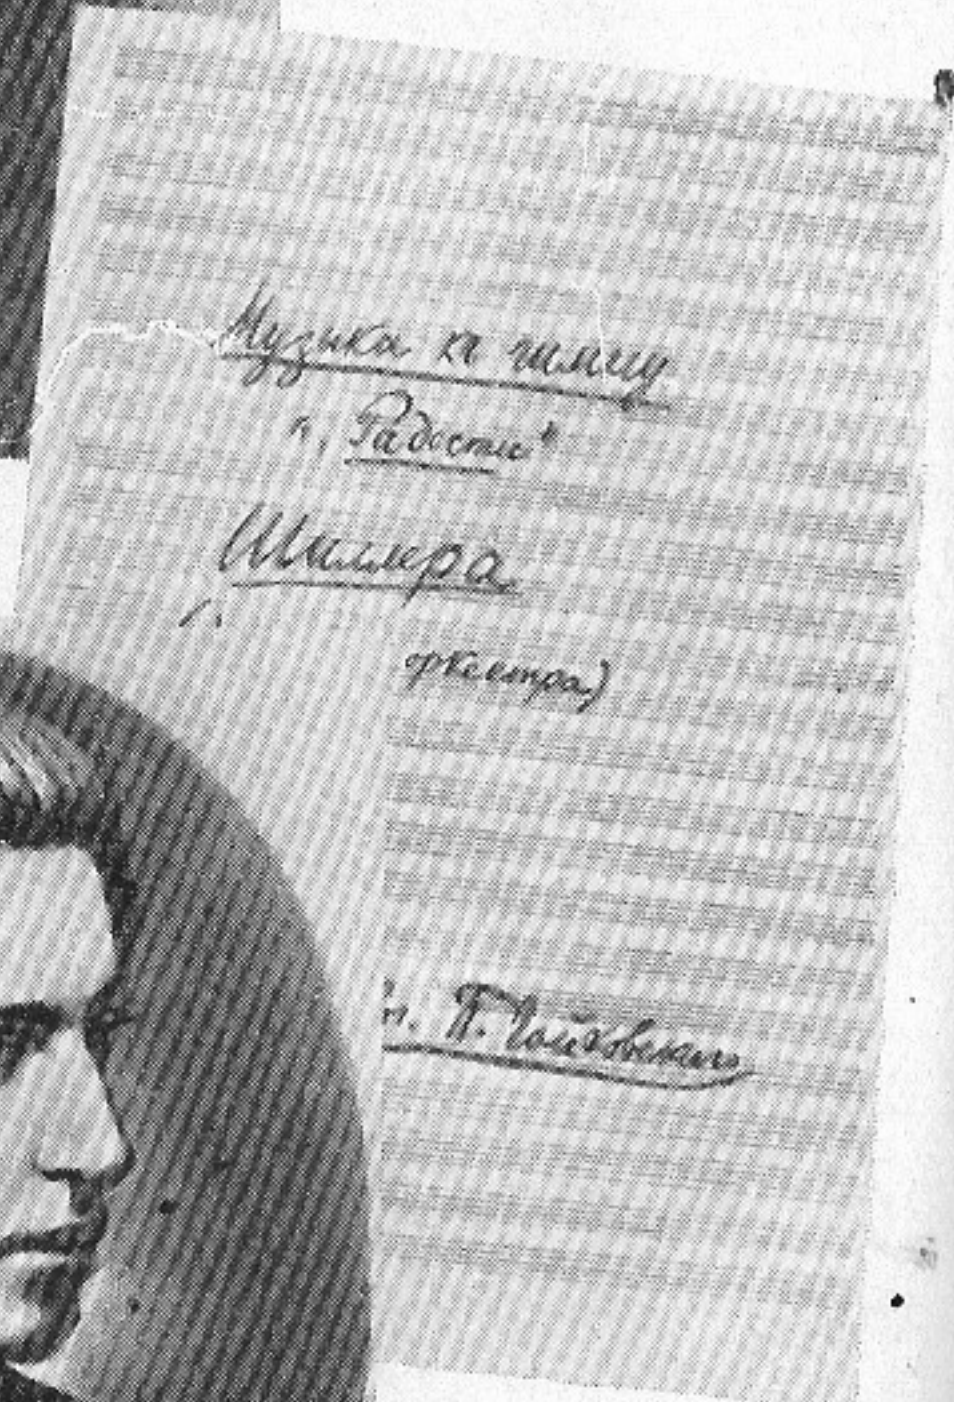 Музыка къ гимну
"къ Радости"
Шиллера
оркестра)
П. Чайковскаго